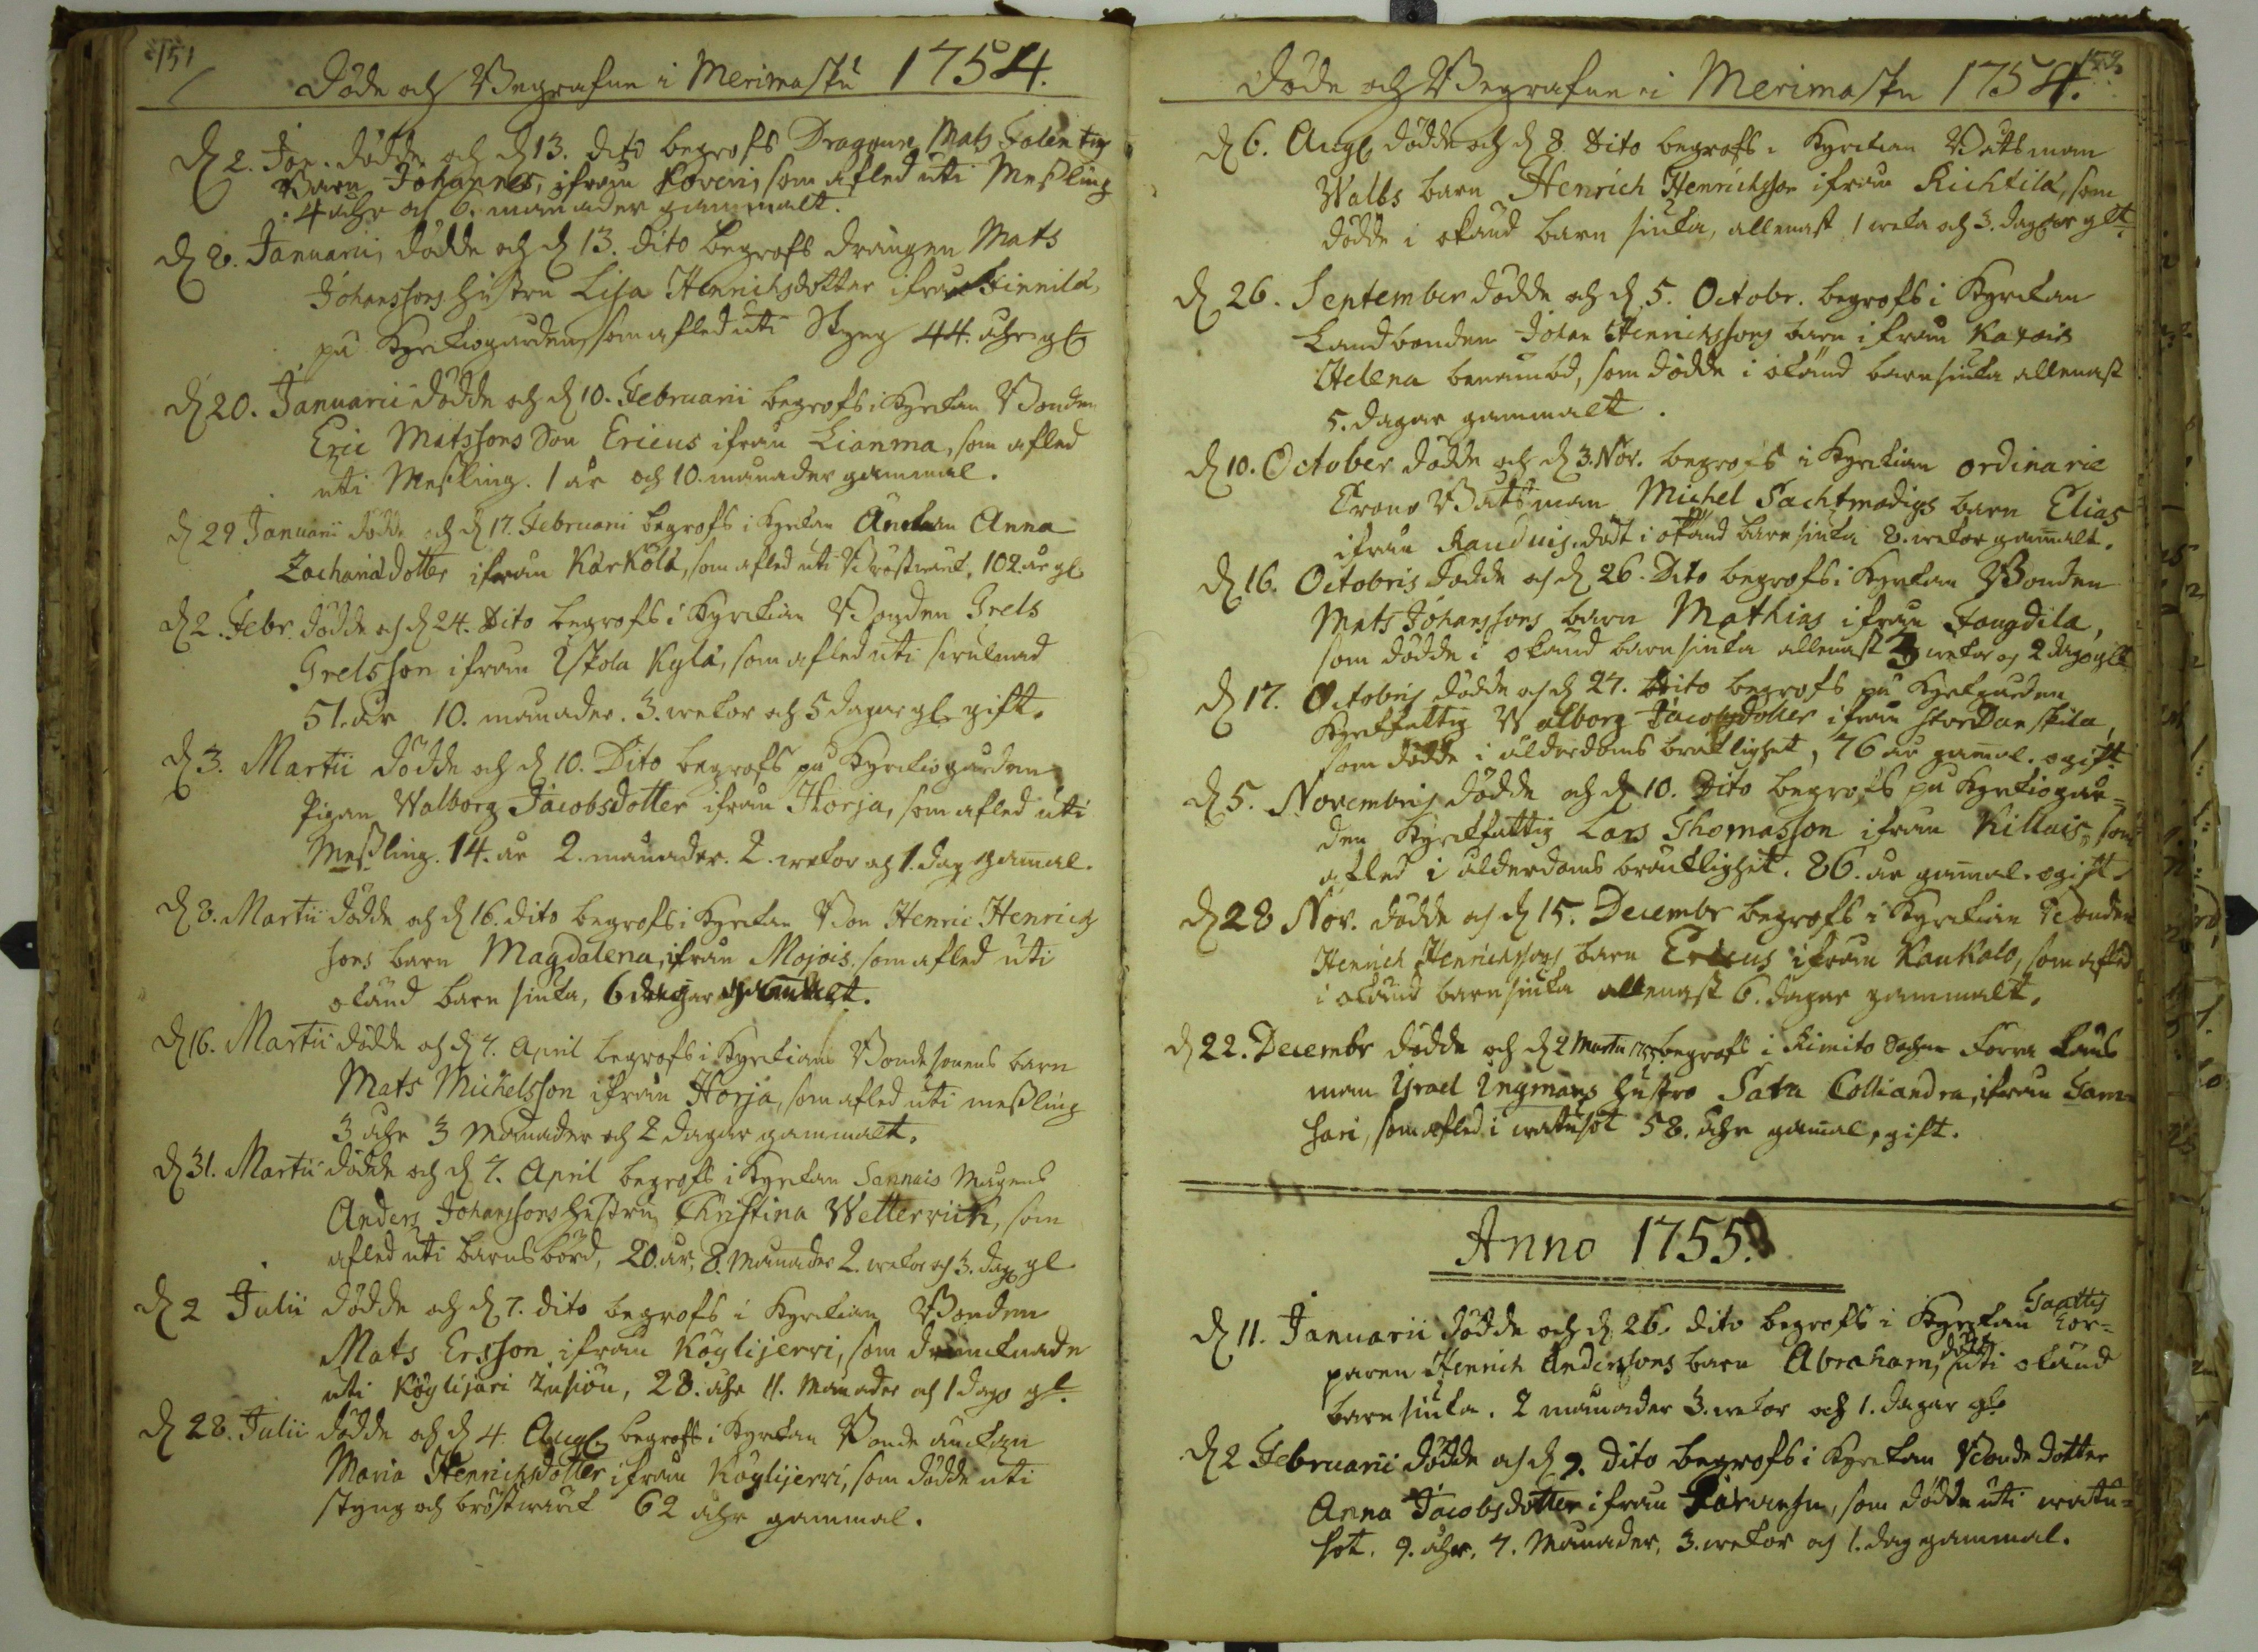 151
Döde och Begrafne i Merimasku 1754.
D 2. Jan. dödde och d 13. dito begrofs Dragoune Mats Falentin
Barn Johannes, ifrån Koveri, som afled uti Meßling
4 åhr och 6. månader gammalt.
D 8. Januarii dödde och d 13. dito begrofs drängen Mats
Johanssons hustru Lisa Henrichsdotter ifrån Finnilä,
på Kyrkiogården, som afled uti Styng 44. åhr gl
D 20. Januarii dödde och d 10. Februarii begrofs i Kyrkan Bonden
Eric Matssons Son Ericus ifrån Lianma, som afled
uti Meßling. 1 år och 10. månader gammal.
D 29 Januarii dödde och d 17. Februarii begrofs i Kyrkan Änckan Anna
Zachariædotter ifrån Kärkölä, som afled uti Bröstwärk. 102. år gl
D 2. Febr. dödde och d 24. Dito begrofs i Kyrckian Bonden Grels
Grelsson ifrån Iskola Kylä, som afled uti
51. år 10. månader. 3. wekor och 5 dagar gl. gift.
D 3. Martii dödde och d 10. Dito begrofs på Kyrckiogården
Pigan Walborg Jacobsdotter ifrån Horja, som afled uti
Meßling. 14. år 2. månader. 2. wekor och 1. dag gamal.
D 3. Martii dödde och d 16. dito begrofs i Kyrckan Bon Henric Henrich
sons barn Magdalena, ifrån Mojois. som afled uti
okänd barn siuka, 6 dagar gammalt.
D 16. Martii dödde och d 7. April begrofs i Kyrckian Bonde sonens barn
Mats Michelsson ifrån Horja, som afled uti meßling
3 åhr 3 Månader och 2 dagar gammalt.
D 31. Martii dödde och d 7. April begrofs i Kyrckan Sannais Mågens
Anders Johanssons hustru Christina Wetterrich, som
afled uti barnsbörd, 20. år, 8. Månader 2. wekor och 3. dag gl.
D 2 Julii dödde och d 7. dito begrofs i Kyrckian Bonden
Mats Ersson ifrån Köylijerri, som drunknade
uti Köylijäri Insiön, 28. åhr 11. Månader och 1 dag gl.
D 28. Julii dödde och d 4. Aug begrofs i Kyrckan Bonde änckan
Maria Henrichsdotter ifrån Köylijerri, som dödde uti
styng och bröstwärk 62 åhr gammal.
Döde och Begrafne i Merimasku 1754.
D 6. Aug dödde och d 8. Dito begrofs i Kyrckian Båtsman
Walbs barn Henrich Henrichsson ifrån Richtilä, som
dödde i okänd barn siuka, allenast 1 weka och 3. dagar glt.
D 26. September dödde och d 5. Octobr. begrofs i Kyrckan
Landbonden Johan Henrichssons barn ifrån Katais
Helena benämbd, som dödde i okänd barnsiuka allenast
5. dagar gammalt.
D 10. October dödde och d 3. Nov. begrofs i Kyrckian ordinarie
Crono Båtsman Michel Sachtmodigs barn Elias
ifrån Rauduis, dödt i okänd barnsiuka 8. wekor gamalt.
D 16. Octobris dödde och d 26. Dito begrofs i Kyrckan Bonden
Mats Johanssons barn Mathias ifrån Fougdila,
som dödde i okänd barnsiuka allenast 3 wekor och 2 dag glt
D 17. Octobris dödde och d 27. Dito begrofs på Kyrkgården
Kyrkfattig Walborg Jacobsdotter ifrån Stor Danskila,
som dödde i ålderdoms bräklighet, 76 år gamal. ogift.
D 5. Novembris dödde och d 10. Dito begrofs på Kyrkiogår=
den Kyrckfattig Lars Thomasson ifrån Killais, som
afled i ålderdoms bräcklighet. 86. år gamal. ogift.
D 28 Nov. dödde och d 15. Decembr begrofs i Kyrckian Bonden
Henrich Henrichssons barn Ericus ifrån Kankalo, som afled
i okänd barnsiuka allenast 6. dagar gammalt.
D 22. Decembr dödde och d 2 Martii 1755 begrofs i Kimito Sochn Förra Läns
man Israel Ingmans hustro Sara Colliandra, ifrån Sam=
sari, som afled i wattusot 58. Åhr gamal, gift.
Anno 1755.
D 11. Januarii dödde och d 26. dito begrofs i Kyrckan Saattis Tor=
paren Henrich Anderssons barn Abraham, dödt uti okänd
barnsiuka. 2 månader 3. wekor och 1. dagar gl
D 2 Februarii dödde och d 9. Dito begrofs i Kyrckan Bonde dotter
Anna Jacobsdotter ifrån Järwensu, som dödde uti wattu=
sot. 9. åhr, 7. Månader, 3. wekor och 1. dag gammal.